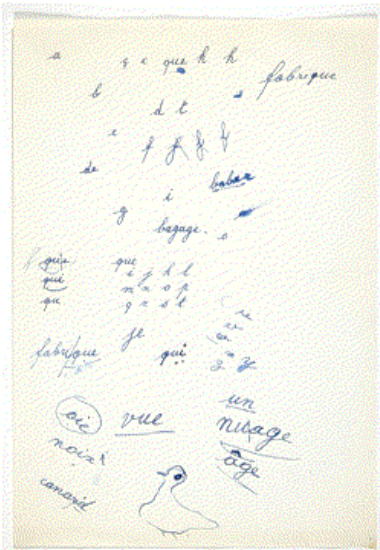 a q c que h h
fabrique
b
d t
e
f f f f
de
babar
i
g
bagage. o
que que
qui i j k l
qu m n o p
q r s t
je
fabrique qui
y
oie vue un
nuage
noix
âge
canard